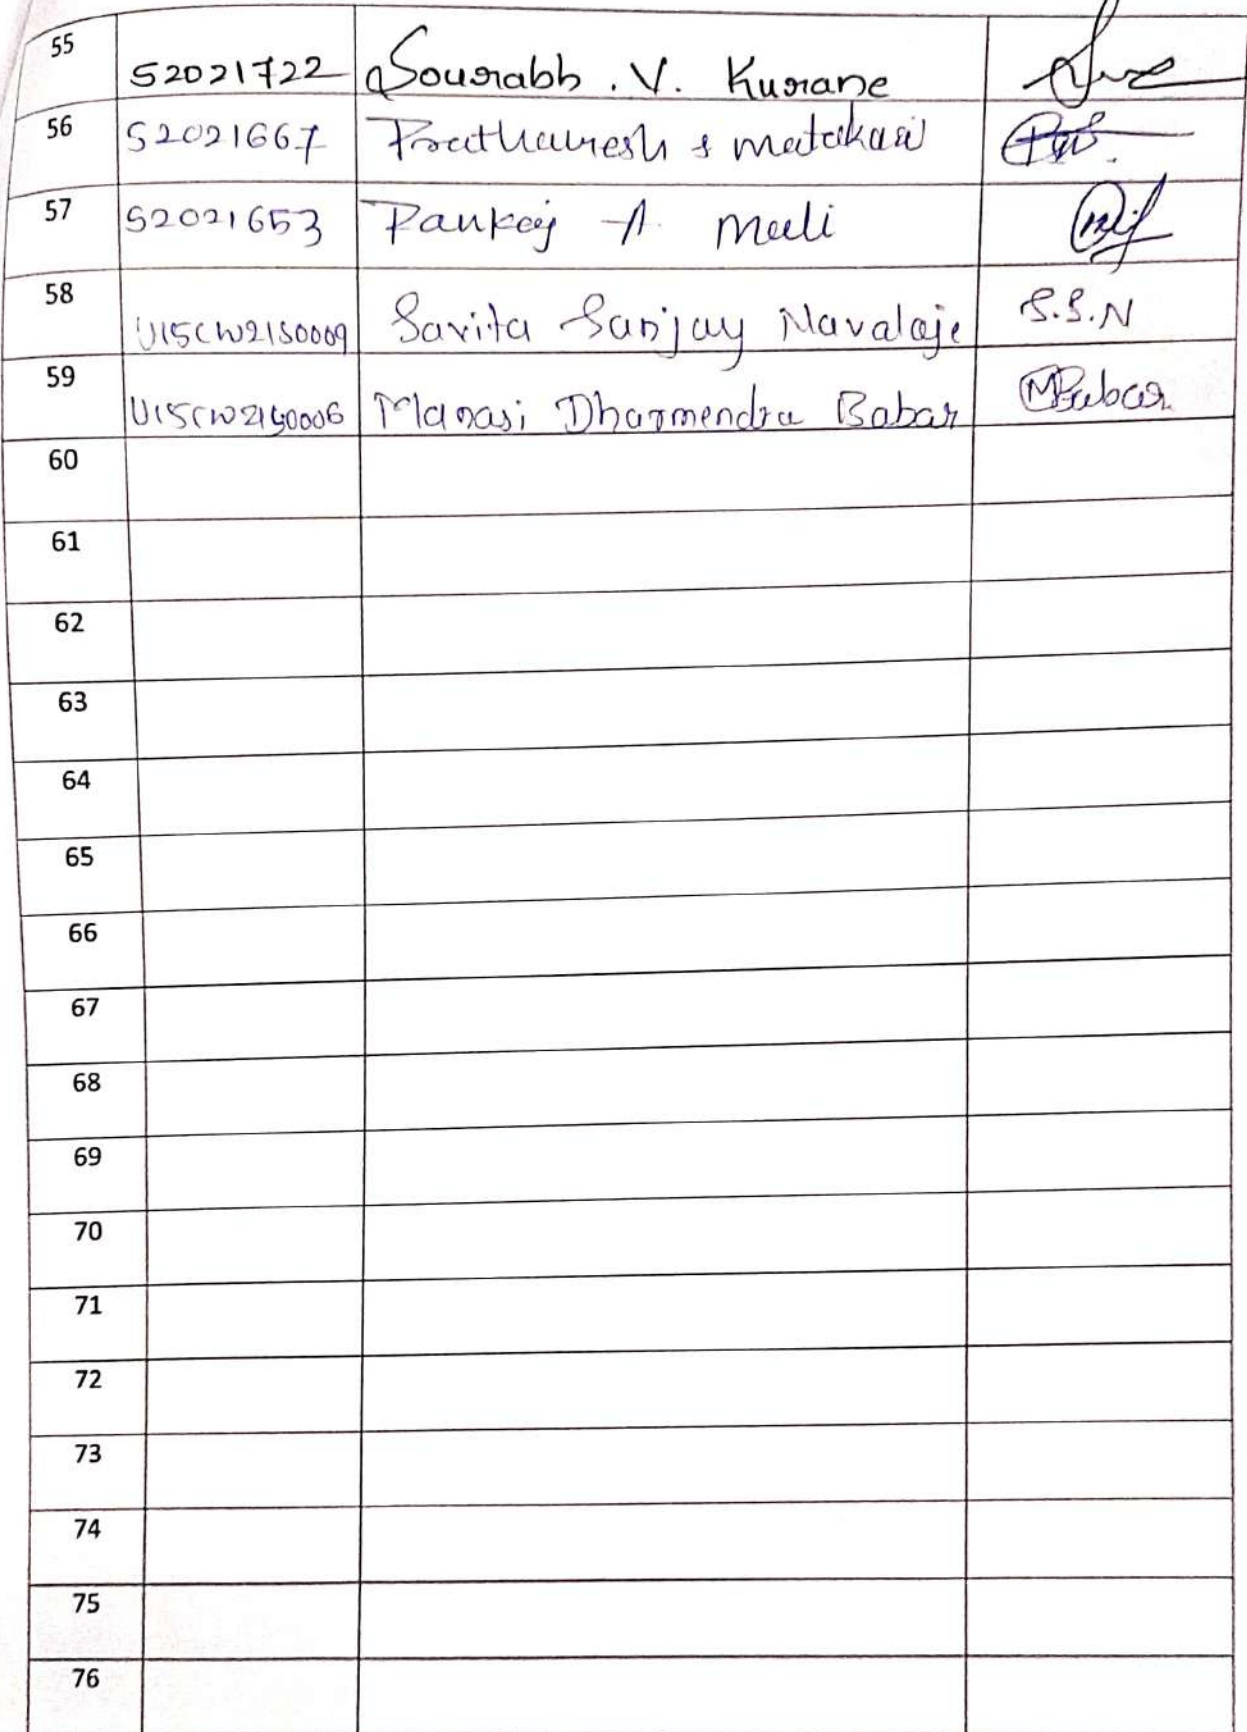 55 S2021722 Sourabh . V. Kurane
56 S2021667 Prathamesh s matakari
57 S2021653 Pankaj A. mali
58 U15CW21S0009 Savita Sanjay Navalaje S.S.N
59 U15CW21S0006 Manasi Dharmendra Babar MBabar
60
61
62
63
64
65
66
67
68
69
70
71
72
73
74
75
76